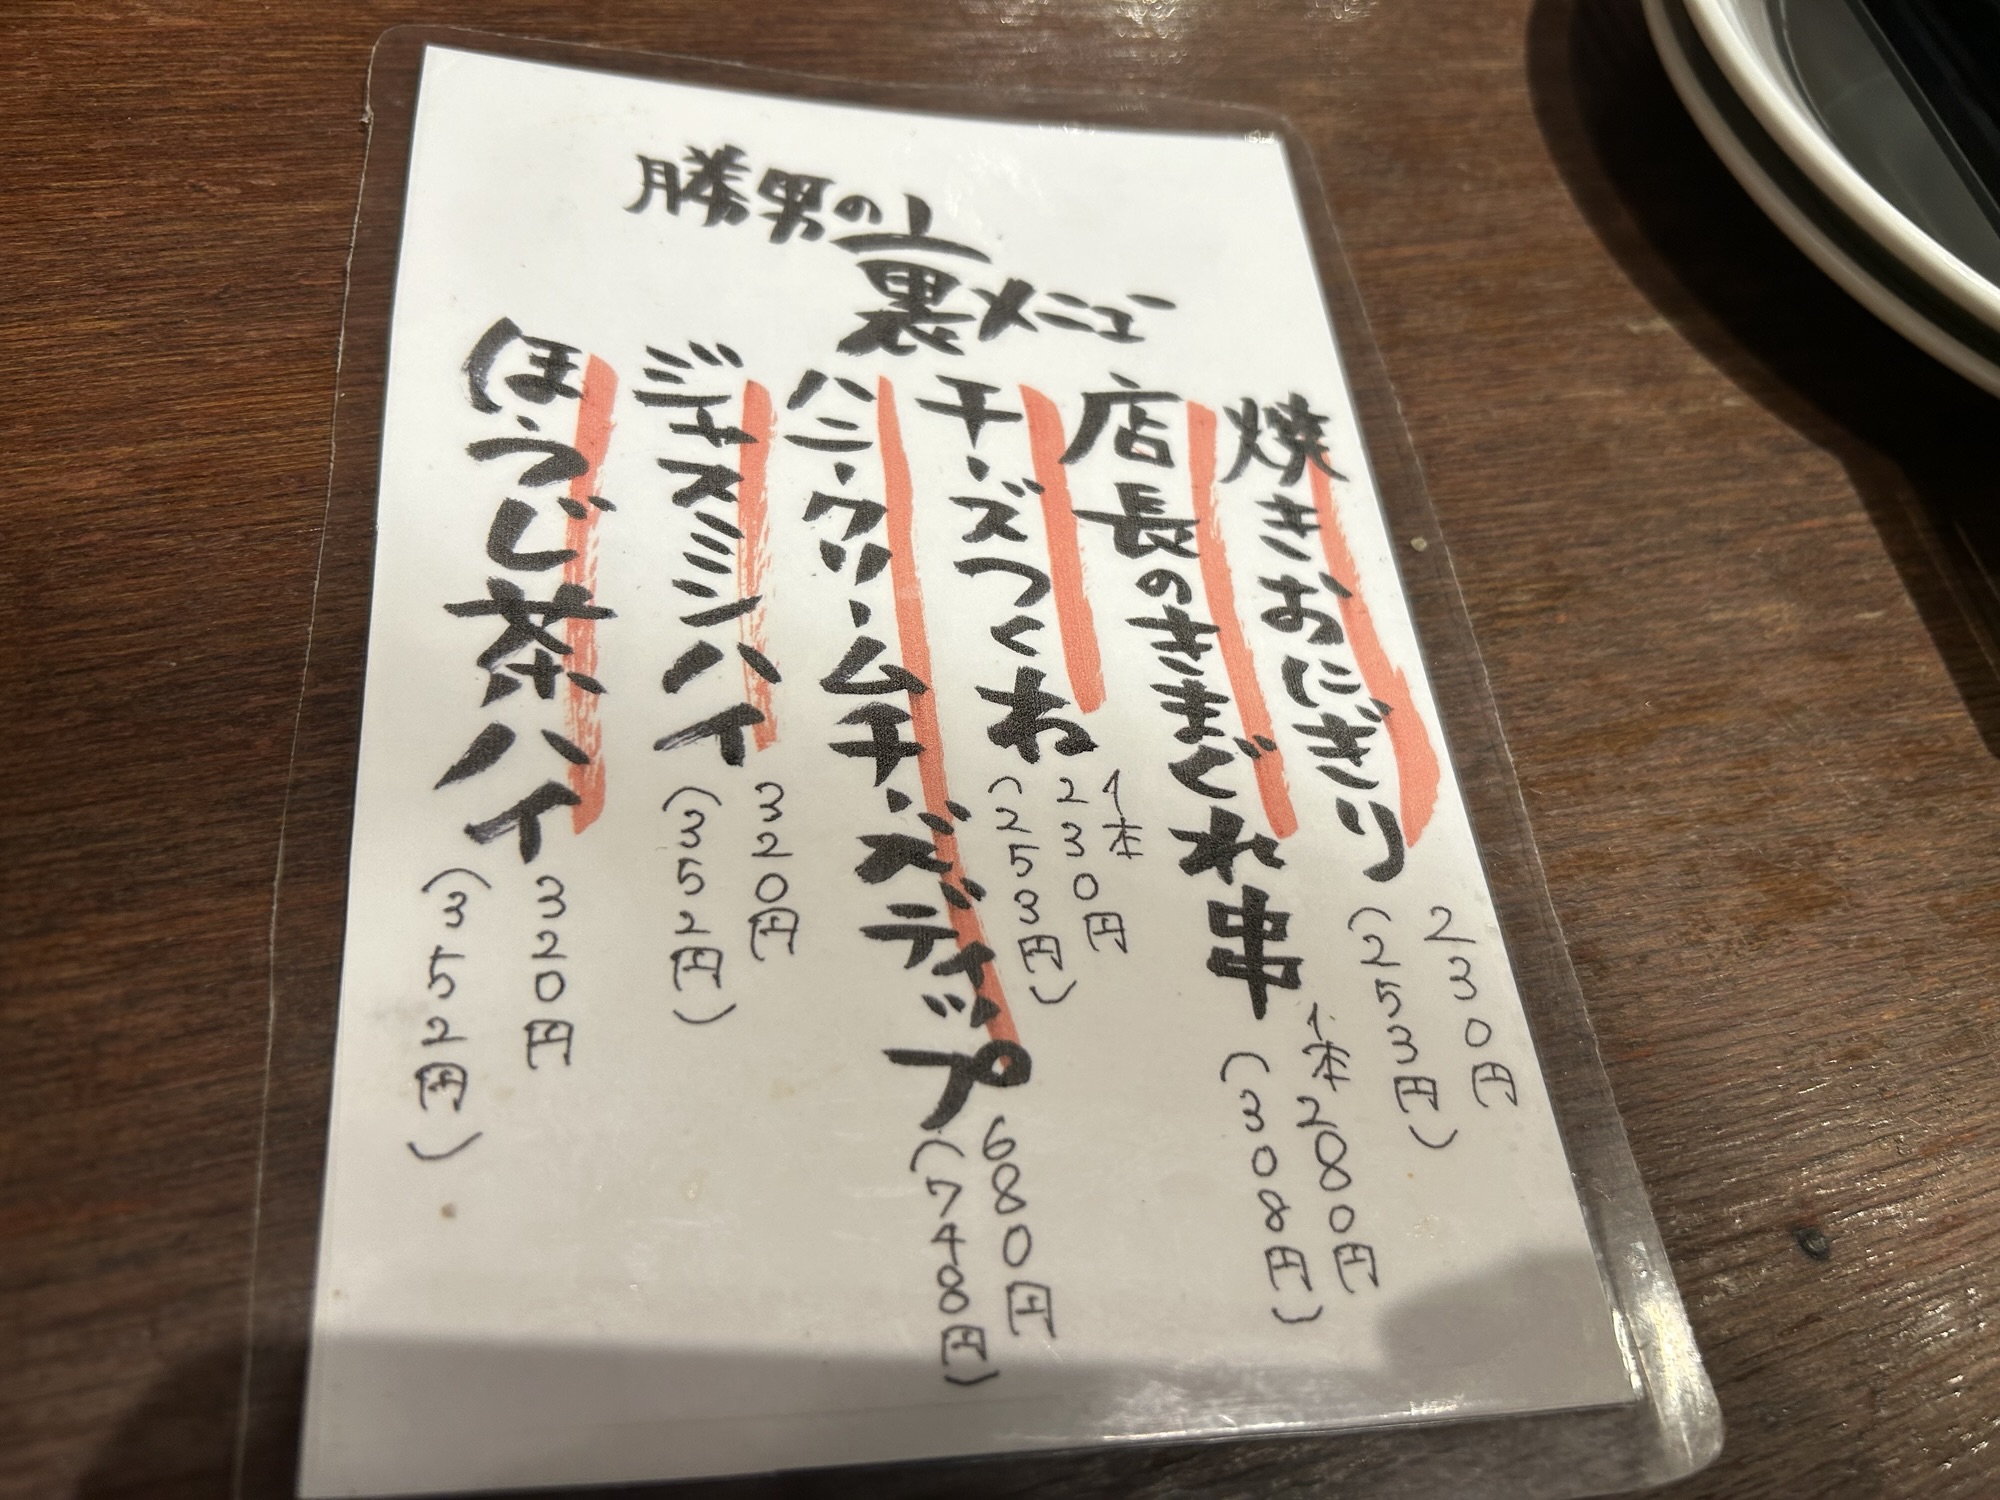 勝男の
裏メニュー
焼きおにぎり
230円
(253円)
店長のきまぐれ串
1本280円
(308円)
チーズつくね
1本
230円
(253円)
ハニークリームチーズディップ
680円
(748円)
ジャスミンハイ
320円
(352円)
ほうじ茶ハイ
320円
(352円)